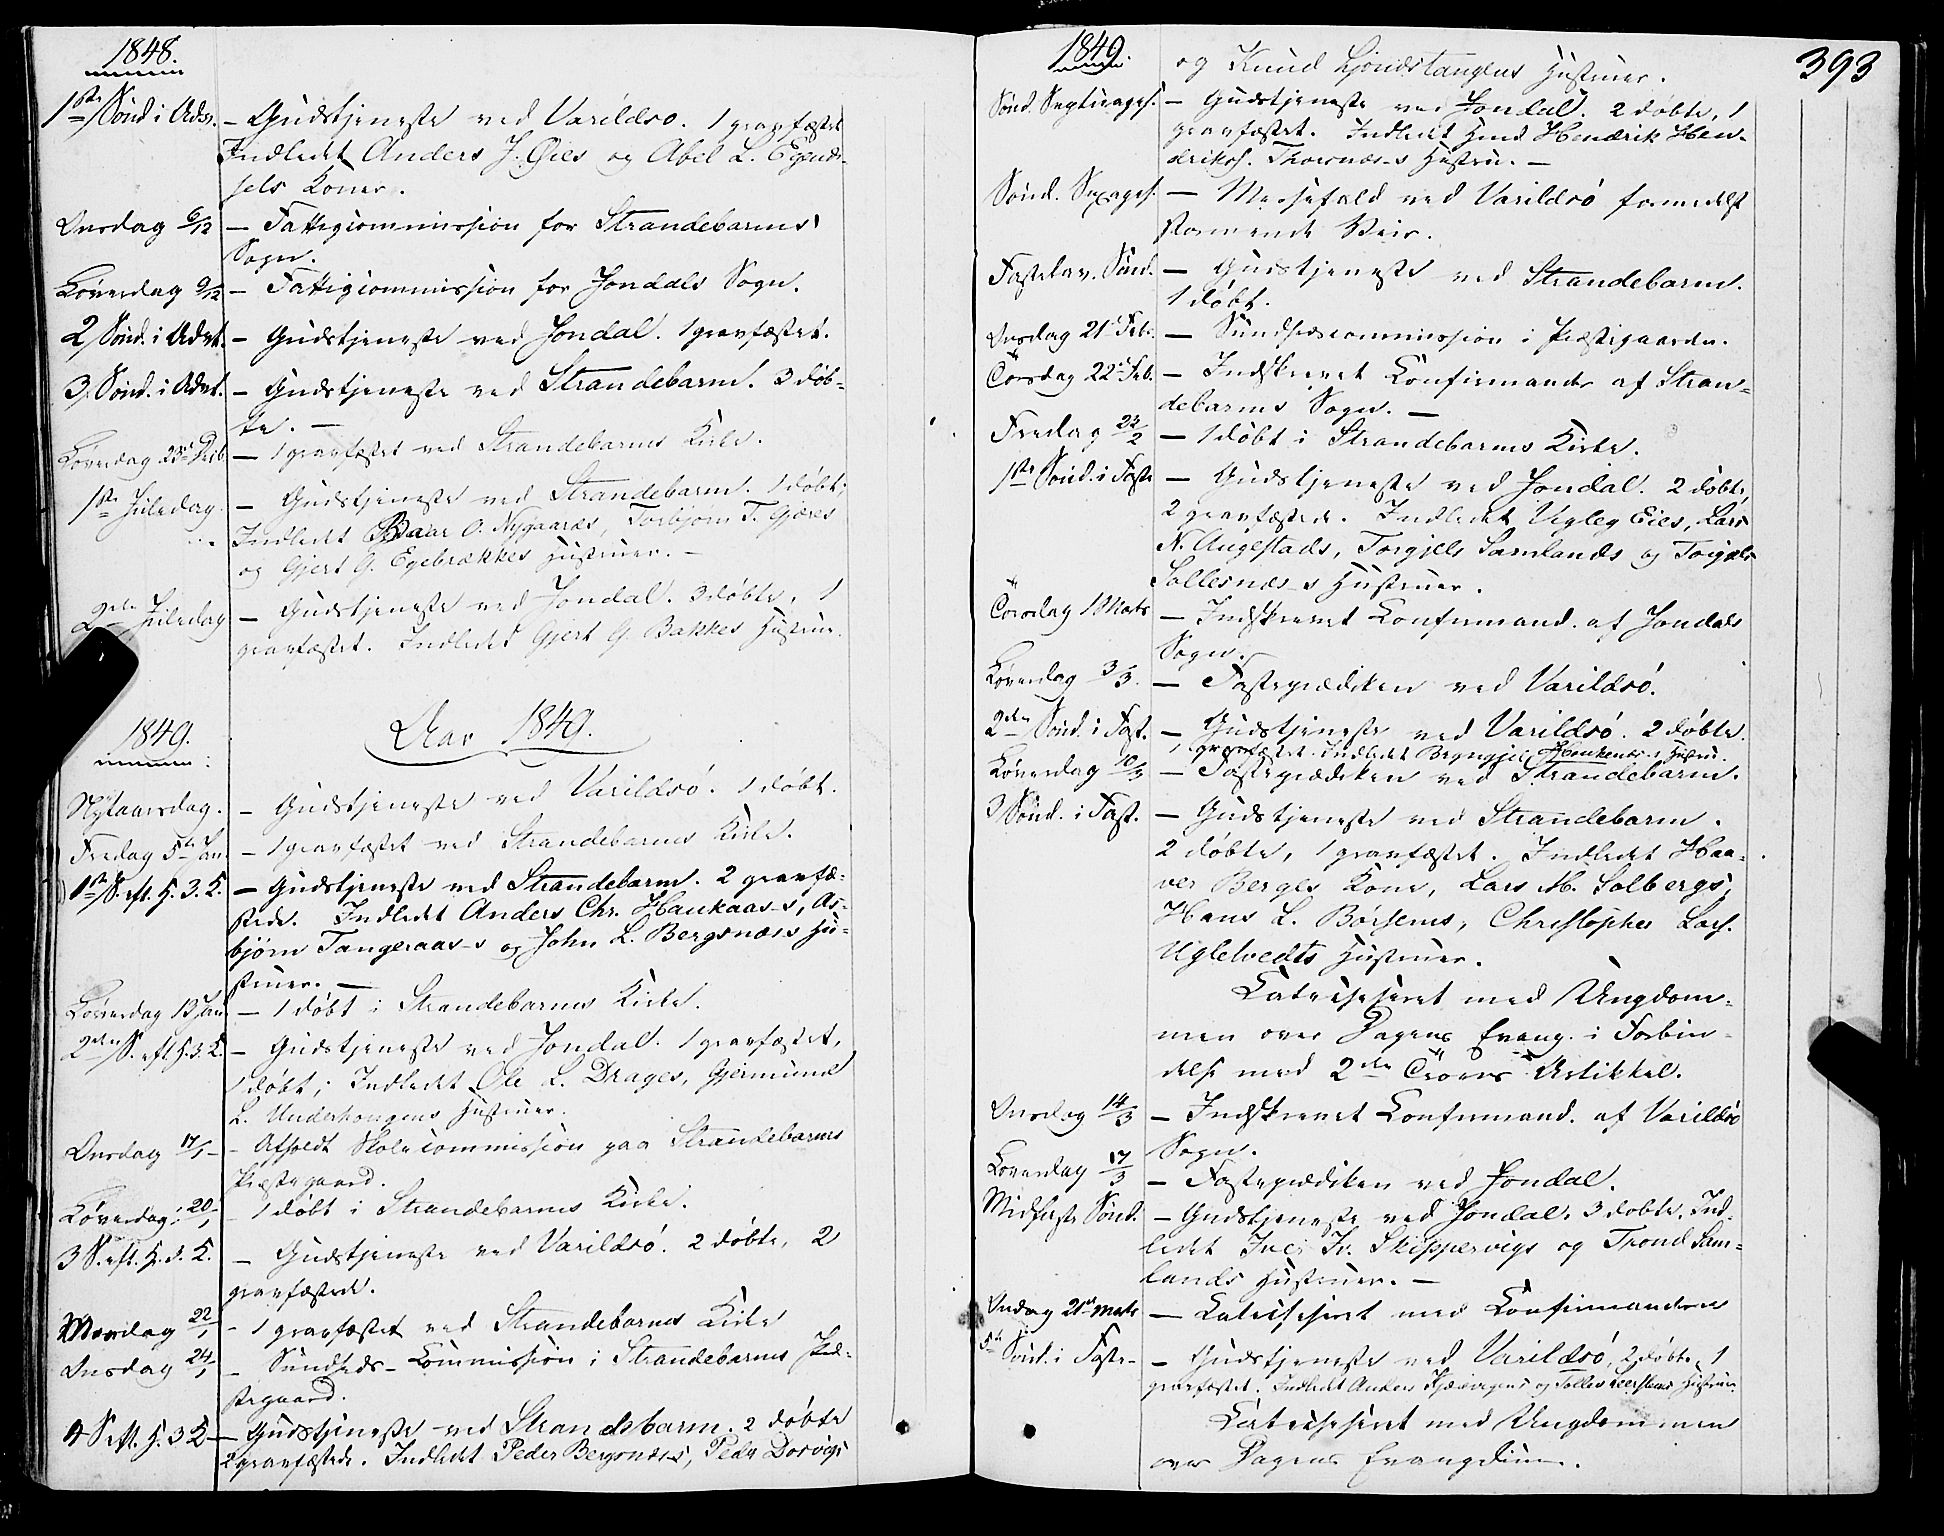 1848.
1ste Sønd. i Adv. – Gudstjeneste ved Varildsø. 1 gravfæstet
Indledet Anders J. Øies og Abel L. Egends-
sels Koner.
Onsdag 6/12 – Fattigcommission for Strandebarms
Sogn.
Løverdag 9/12 – Fattigcommission for Jondals Sogn.
2 Sønd. i Advt. – Gudstjeneste ved Jondal. 1 gravfæstet.
3. Sønd. i Advt. – Gudstjeneste ved Strandebarm. 3 døb-
te. –
Løverdag 23de Decb. – 1 gravfæstet ved Strandebarms Kirke.
1ste Juledag – Gudstjeneste ved Strandebarm. 1 døbt;
Indledt Baar O. Nygaards, Torbjørn T. Gjæres
og Gjert G. Egebrækkes Hustruer. –
2den Juledag – Gudstjeneste ved Jondal. 3 døbte, 1
gravfæstet. Indledet Gjert G. Bakkes Hustrue.
1849. Aar 1849.
Nytaarsdag. – Gudstjeneste ved Varildsø. 1 døbt.
Fredag 5te Jan. – 1 gravfæstet ved Strandebarms Kirke.
1ste S. eft. H. 3. K. – Gudstjeneste ved Strandebarm. 2 gravfæ-
stede. Indledet Anders Chr. Haukaas-s, As-
bjørn Tangeraas-s og John L. Bergsnæss Hu-
struer. –
Løverdag 13 Jan. – 1 døbt i Strandebarms Kirke.
2den S. eft. H. 3. K. – Gudstjeneste ved Jondal. 1 gravfæstet,
1 døbt; Indledet Ole L. Drages, Gjermund
L. Underhougens Hustruer.
Onsdag 17/1 – Afholdt Skolecommission paa Strandebarms
Præstegaard.
Løverdag 20/1 – 1 døbt i Strandebarms Kirke.
3 S. eft. H. 3. K. – Gudstjeneste ved Varildsø. 2 døbte, 2
gravfæstede.
Mandag 22/1 – 1 gravfæstet ved Strandebarms Kirke
Onsdag 24/1 – Sundheds-Commission i Strandebarms Præ-
stegaard.
4 S. eft. H. 3 K – Gudstjeneste ved Strandebarm. 2 døbte
2 gravfæstede. Indledet Peder Bergsnæs-s, Peder Dosvigs
1849. 393
og Knud Ljondstangens Hustruer.
Sønd. Septuages. – Gudstjeneste ved Jondal. 2 døbte, 1
gravfæstet. Indledt Hmd Hendrik Hen-
driks. Thorsnæs-s Hustru. –
Sønd. Sexages. – Messefald ved Varildsø formedelst
stormende Veir.
Fastelav. Sønd. – Gudstjeneste ved Strandebarm.
1 døbt.
Onsdag 21 Feb. – Sundhedscommission i Præstegaarden.
Torsdag 22 Feb. – Indskrevet Confirmander af Stran-
debarms Sogn. –
Fredag 23/2 – 1 døbt i Strandebarms Kirke.
1ste Sønd. i Faste – Gudstjeneste ved Jondal. 2 døbte,
2 gravfæstede. Indledet Vigleg Eies, Lars
N. Augestads, Torgjels Samlands og Torgjels
Sollesnæs-s Hustruer.
Torsdag 1 Marts – Indskrevet Confirmand. af Jondals
Sogn.
Løverdag 3/3. – Fasteprædiken ved Varildsø.
2den Sønd. i Fast. – Gudstjeneste ved Varildsø. 2 døbte.
1 gravfæstet. Indledet Brynjel Haukenæs-s Hustru.
Løverdag 10/3 – Fasteprædiken ved Strandebarm.
3 Sønd. i Fast. – Gudstjeneste ved Strandebarm.
2 døbte, 1 gravfæstet. Indledet Haa-
ver Berges Kone, Lars M. Solbergs,
Hans L. Børsems, Christopher Lars.
Uglelvedts Hustruer.
Catechiseret med Ungdom-
men over Dagens Evang. i Forbin-
delse med 2den Troens Artikkel.
Onsdag 14/3 – Indskrevet Confirmand. af Varildsø
Sogn.
Løverdag 17/3 – Fasteprædiken ved Jondal.
Midfaste Sønd. – Gudstjeneste ved Jondal. 3 døbte. Ind-
ledet Iver Iv. Skippervigs og Trond Sam-
lands Hustruer. –
Onsdag 21de Marts – Catechiseret med Confirmanderne
5te Sønd. i Faste – – Gudstjeneste ved Varildsø, 2 døbte, 1
gravfæstet. Indledt Anders og Hustruer.
Catechiseret med Ungdommen
over Dagens Evangelium.